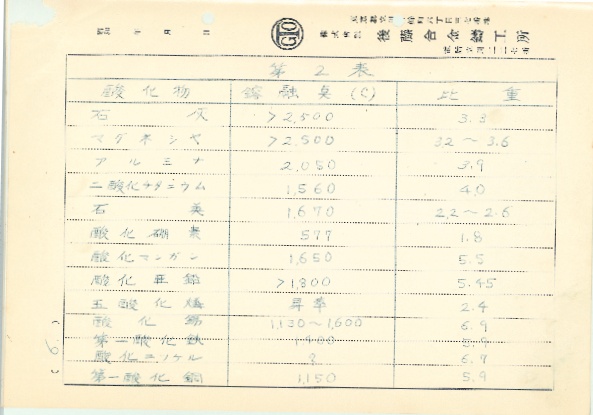 年 月 日
GTO
株式会社 後藤合金鑄工所
第2表
酸化物 鎔融点(C) 比重
石灰 >2,500 3.3
マグネシヤ >2,500 3.2～3.6
アルミナ 2,050 3.9
二酸化チタニウム 1,560 4.0
石英 1,670 2.2～2.6
酸化硼素 577 1.8
酸化マンガン 1,650 5.5
酸化亜鉛 >1,800 5.45
五酸化燐 昇華 2.4
酸化錫 1,130～1,600 6.9
第一酸化鉄 1,400 5.9
酸化ニッケル ? 6.9
第一酸化銅 1,150 5.9